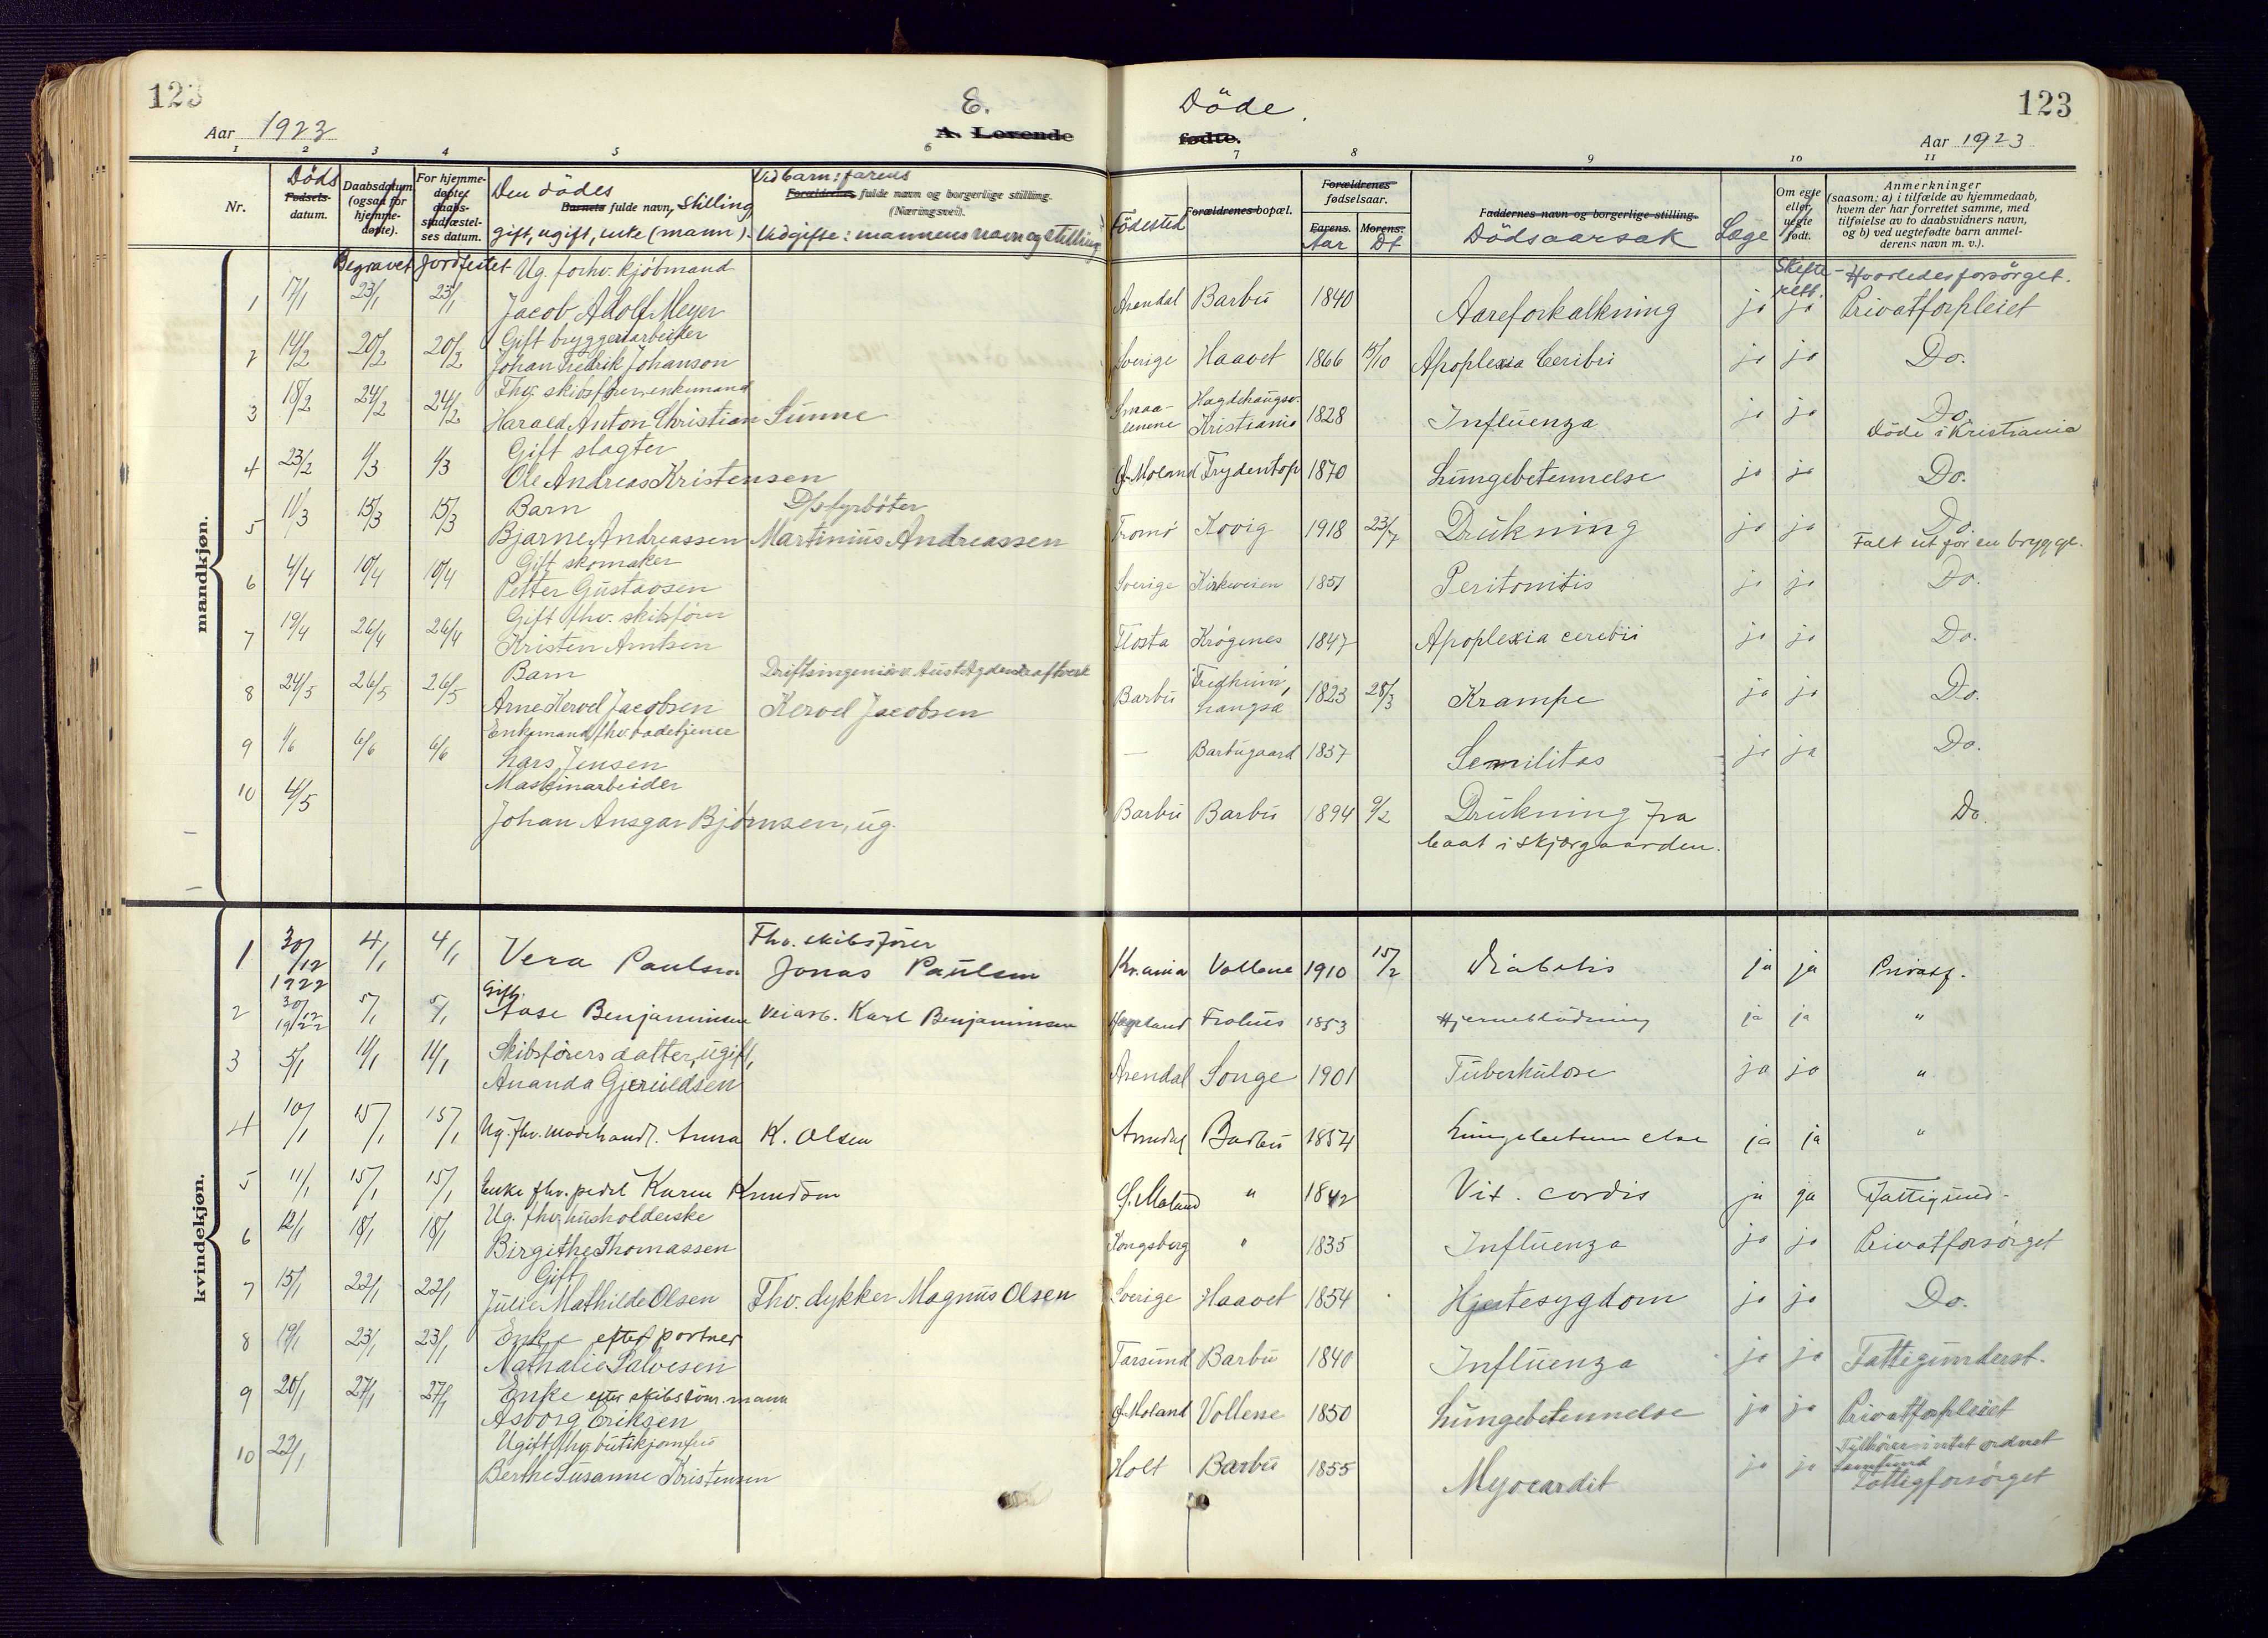 123
E. Döde.
123
Aar 1923
A. Levende fødte.
Aar 1923
1 2 3 4 5 6 7 8 9 10 11
Nr.
Döds
Fødsels-
datum.
Daabsdatum
(ogsaa for
hjemme-
døpte).
Begravet
For hjemme-
døpte:
daabs-
stadfæstel-
ses datum.
Jordfestet
Den dödes
Barnets fulde navn, stilling,
gift, ugift, enke (mann).
Ved barn: farens
Forældrenes fulde navn og borgerlige stilling.
(Næringsvei).
Ved gifte: mannens navn og stilling
Födested
Forældrenes bopæl.
Forældrenes
fødselsaar.
Farens. Morens.
Aar Dt
Faddernes navn og borgerlige stilling.
Dödsaarsak
Læge
Om egte
eller
uegte
født.
Skifte-
rett.
Anmerkninger
(saasom: a) i tilfælde av hjemmedaab,
hvem der har forrettet samme, med
tilføielse av to daabsvidners navn,
og b) ved uegtefødte barn anmel-
derens navn m. v.).
Hvorledes forsörget.
mandkjøn.
Ug. forhv. kjöbmand
1 17/1 23/1 23/1 Jacob Adolf Meyer Arendal Barbu 1840 Aareforkalkning ja ja Privatforpleiet
Gift bryggeriarbeider
2 14/2 20/2 20/2 Johan Fredrik Johanson Sverige Haavet 1866 15/10 Apoplexia Ceribri ja ja Do.
Fhv. skibsförer, enkemand
3 18/2 24/2 24/2 Harald Anton Christian Sunne Smaa-lenene Hagdehaugsv. Kristiania 1828 Influenza ja ja Do.
Döde i Kristiania
Gift slagter
4 23/2 1/3 1/3 Ole Andreas Kristensen Ø. Moland Frydentop 1870 Lungebetennelse ja ja Do.
Barn D/s fyrböter
5 11/3 15/3 15/3 Bjarne Andreassen Martinius Andreassen Tromö Kovig 1918 23/7 Drukning ja ja Do.
Falt ut for en brygge.
Gift skomaker
6 4/4 10/4 10/4 Petter Gustavsen Sverige Kirkeveien 1851 Peritonitis ja ja Do.
Gift fhv. skibsförer
7 19/4 26/4 26/4 Kristen Arntsen Flosta Krögenes 1847 Apoplexia ceribri ja ja Do.
Barn Driftsingeniör v. Aust Agder kraftverk
8 24/5 26/5 26/5 Arne Kervel Jacobsen Kervel Jacobsen Barbu 1823 28/3 Krampe ja ja Do.
Enkemand, fhv. badetjener
9 1/6 6/6 6/6 Lars Jensen — Barbugaard 1837 Semilitas ja ja Do.
Maskinarbeider
10 4/5 Johan Ansgar Björnsen, ug. Barbu Barbu 1894 9/2 Drukning fra Do.
baat i skjærgaarden.
kvindekjøn.
Fhv. skibsförer
1 30/12 1922 4/1 4/1 Vera Paulsen Jonas Paulsen Kr.ania Vollene 1910 15/2 Diabetis ja ja Privatf.
Gift.
2 30/12 1922 5/1 5/1 Aase Benjaminsen veiarb. Karl Benjaminsen FrolUs 1853 Hjerneblödning ja ja "
Skibsförers datter, ugift,
3 5/1 14/1 14/1 Ananda Gjeruldsen Arendal Songe 1901 Tuberkulose ja ja "
4 10/1 15/1 15/1 Ug. fhv. modehandl. Anna K. Olsen Arendal Barbu 1854 Lungebetennelse ja ja "
5 11/1 15/1 15/1 Enke fhv. pedel Karen Knudsen Ø. Moland " 1842 Vit. cordis ja ja Fattigund-
Ug. fhv. husholderske
6 12/1 18/1 18/1 Birgithe Thomassen Kongsberg " 1835 Influenza ja ja Privatforsörget
Gift
7 15/1 22/1 22/1 Julie Mathilde Olsen Fhv. dykker Magnus Olsen Sverige Haavet 1854 Hjertesygdom ja ja Do.
Enke efter portner
8 19/1 23/1 23/1 Nathalie Salvesen Farsund Barbu 1840 Influenza ja ja Fattigunderst.
Enke efter skibstömmermann
9 20/1 27/1 27/1 Asborg Eriksen Ø. Moland Vollene 1850 Lungebetennelse ja ja Privatforpleiet
Ugift fhv. butikjomfru Tilhörer intet ordnet
10 22/1 Berthe Susanne Kristensen Holt Barbu 1855 Myocardit ja ja Samfund
Fattigforsörget